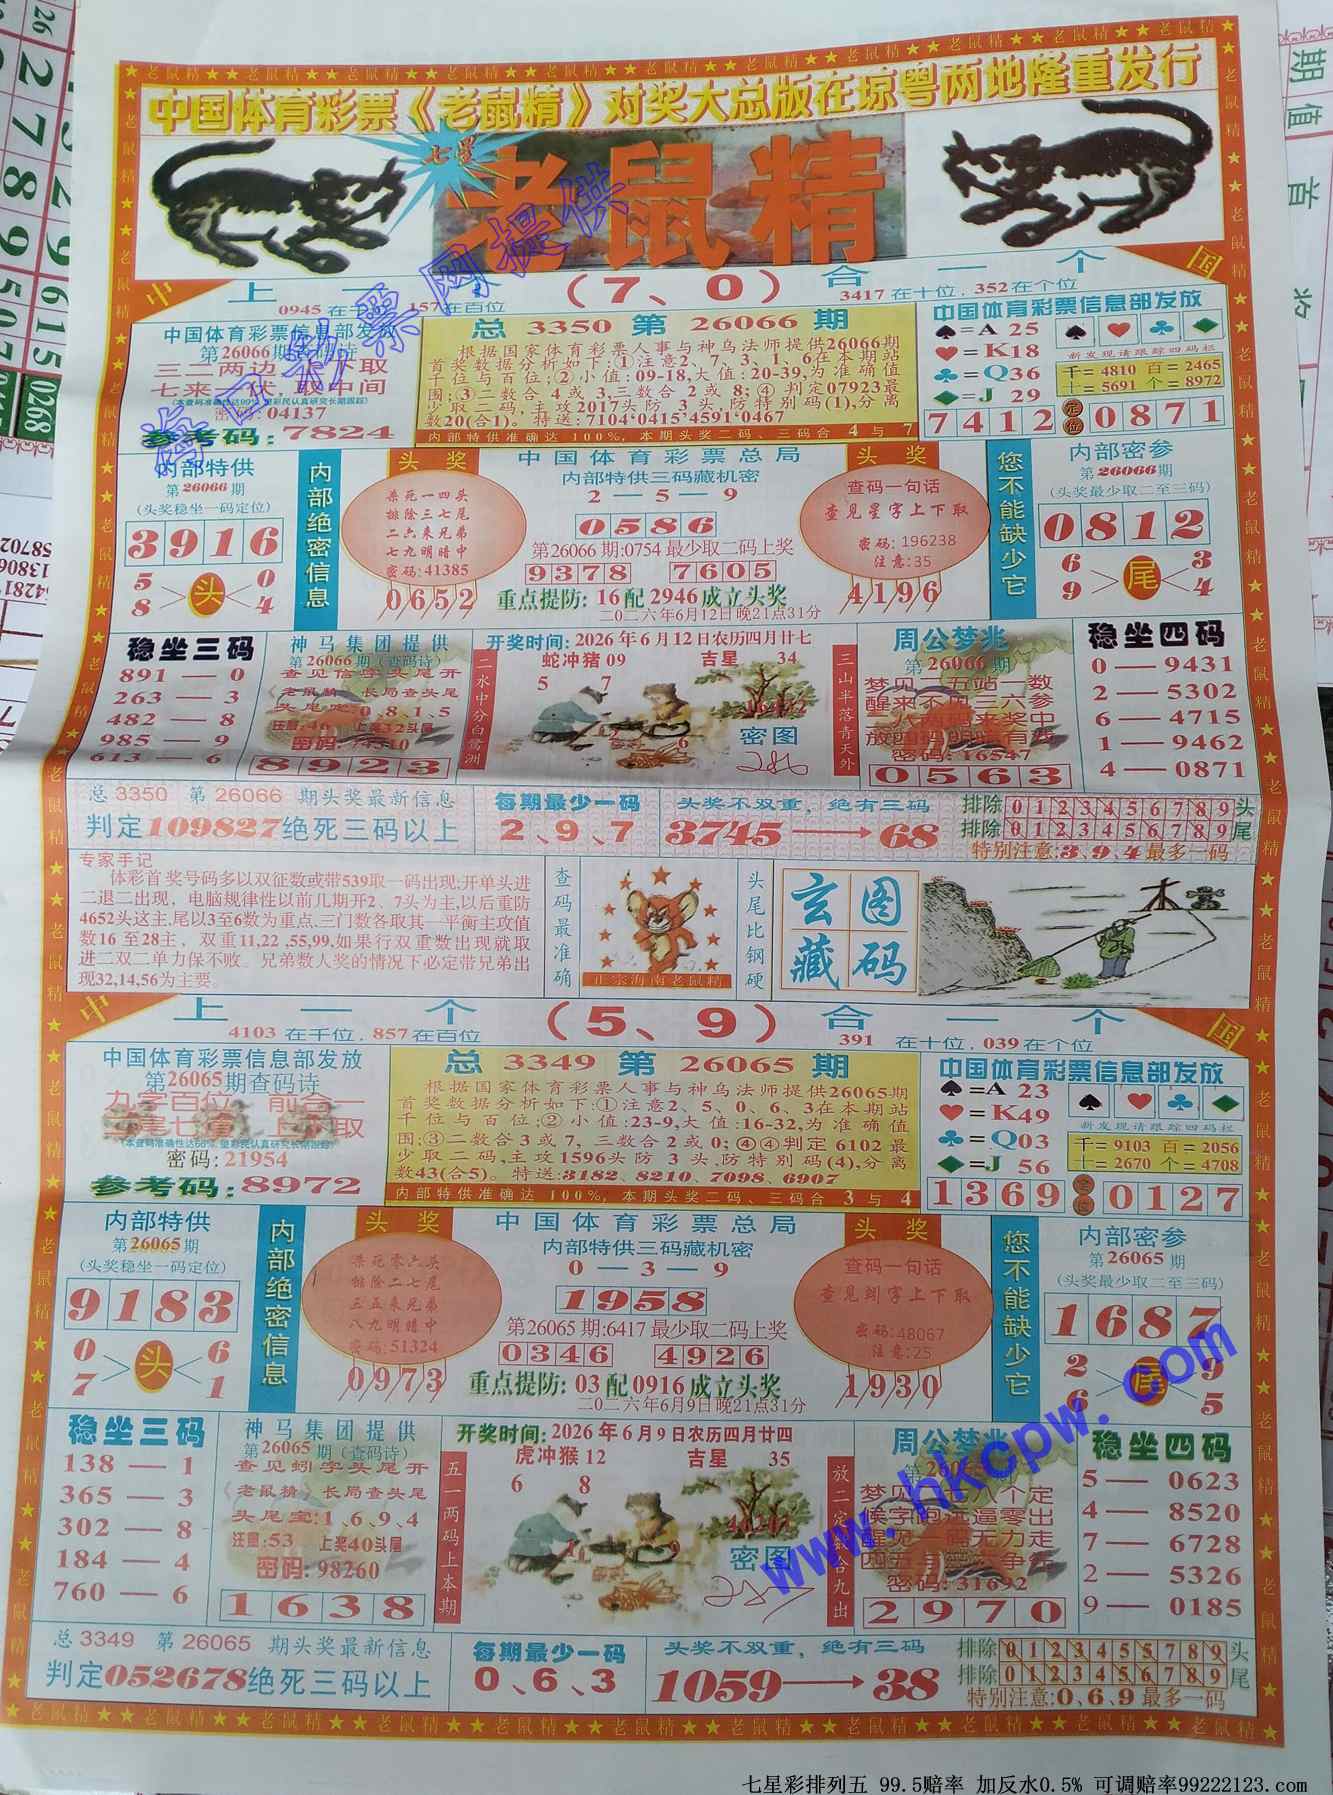 中国体育彩票《老鼠精》对奖大总版在琼粤两地隆重发行
七星
老鼠精
上一个
(7、0)
合一个
3417在十位，352在个位
中国体育彩票信息部发放
三二两边上下取
七来一伏取中间
密码:04137
参考码:7824
总 3350 第 26066 期
根据国家体育彩票人事与神乌法师提供26066期
首奖数据分析如下:①注意2、7、3、1、6在本期站
千位与百位;②小值:09-18,大值:20-39,为准确值
围;③二数合 4 或 3,三数合 2 或 8;④ 判定07923最
少取二码,主攻2017头防 3 头,防特别码(1),分离
数20(合1)。特送:7104*0415*4591*0467
内部特供准确达 100%,本期头奖二码、三码合 4 与 7
中国体育彩票信息部发放
♠=A 25
♥=K18
♣=Q36
♦=J 29
新发现请跟踪四码栏
千= 4810 百= 2465
十= 5691 个= 8972
7412 定位 0871
内部特供
第26066期
(头奖稳坐一码定位)
3916
5 0
头
8 4
内部绝密信息
头奖
杀死一四头
排除三七尾
二六来兄弟
七九明暗中
密码:41385
0652
中国体育彩票总局
内部特供三码藏机密
2—5—9
0586
第26066期:0754最少取二码上奖
9378 7605
重点提防:16配2946成立头奖
二〇二六年6月12日晚21点31分
头奖
查码一句话
查见星字上下取
密码:196238
注意:35
4196
您不能缺少它
内部密参
第26066期
(头奖最少取二至三码)
0812
6 3
尾
9 4
稳坐三码
891—0
263—3
482—8
985—9
613—6
神马集团提供
第26066期(查码诗)
查见信字头尾开
《老鼠精》长局查头尾
头尾定:0、8、1、5
8923
二水中分白鹭洲
开奖时间:2026年6月12日农历四月廿七
蛇冲猪 09 吉星 34
5 7
密图
三山半落青天外
周公梦兆
第26066期
梦见二五站一数
密码:16547
0563
稳坐四码
0—9431
2—5302
6—4715
1—9462
4—0871
总 3350 第 26066 期头奖最新信息
判定109827绝死三码以上
每期最少一码
2、9、7
头奖不双重，绝有三码
3745→68
排除 0 1 2 3 4 5 6 7 8 9 头
排除 0 1 2 3 4 5 6 7 8 9 尾
特别注意:3、9、4最多一码
专家手记
体彩首奖号码多以双征数或带539取一码出现;开单头进
二退二出现，电脑规律性以前几期开2、7头为主,以后重防
4652头这主,尾以3至6数为重点,三门数各取其一平衡主攻值
数16至28主，双重11,22,55,99,如果行双重数出现就取
进二双二单力保不败。兄弟数人奖的情况下必定带兄弟出
现32,14,56为主要。
查码最准确
正宗海南老鼠精
头尾比钢硬
玄图
藏码
上一个
4103 在千位, 857在百位
(5、9)
合一个
391 在十位, 039在个位
中国体育彩票信息部发放
第26065期查码诗
密码:21954
参考码:8972
总 3349 第 26065 期
根据国家体育彩票人事与神乌法师提供26065期
首奖数据分析如下:①注意2、5、0、6、3在本期站
千位与百位;②小值:23-9,大值:16-32,为准确值
围;③二数合3或7,三数合2或0;④④判定6102最
少取二码,主攻1596头防 3 头,防特别码(4),分离
数43(合5)。特送:3182、8210、7098、6907
内部特供准确达 100%,本期头奖二码、三码合 3 与 4
中国体育彩票信息部发放
♠=A 23
♥=K49
♣=Q03
♦=J 56
新发现请跟踪四码栏
千= 9103 百= 2056
十= 2670 个= 4708
1369 0127
内部特供
第26065期
(头奖稳坐一码定位)
9183
0 6
头
7 1
内部绝密信息
头奖
杀死零六头
排除二七尾
三五来兄弟
八九明暗中
密码:51324
0973
中国体育彩票总局
内部特供三码藏机密
0—3—9
1958
第26065期:6417最少取二码上奖
0346 4926
重点提防:03配0916成立头奖
二〇二六年6月9日晚21点31分
头奖
查码一句话
查见剀字上下取
密码:48067
注意:25
1930
您不能缺少它
内部密参
第26065期
(头奖最少取二至三码)
1687
2 9
尾
6 5
稳坐三码
138—1
365—3
302—8
184—4
760—6
神马集团提供
第26065期(查码诗)
查见蚓字头尾开
《老鼠精》长局查头尾
头尾定:1、6、9、4
注意:53 上奖40头尾
密码:98260
1638
五一两码上本期
开奖时间:2026年6月9日农历四月廿四
虎冲猴 12 吉星 35
6 8
密图
周公梦兆
密码:31692
2970
稳坐四码
5—0623
4—8520
7—6728
2—5326
9—0185
总 3349 第 26065 期头奖最新信息
判定052678绝死三码以上
每期最少一码
0、6、3
头奖不双重，绝有三码
1059→38
排除 0 1 2 3 4 5 6 7 8 9 头
排除 0 1 2 3 4 5 6 7 8 9 尾
特别注意:0、6、9最多一码
www.hkcpw.com
七星彩排列五 99.5赔率 加反水0.5% 可调赔率99222123.com